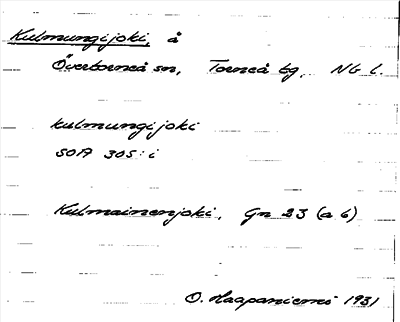 Kulmungijoki, å
Övertorneå sn, Torneå tg, NG L.
kulmungijoki
SOA 305:i
Kulmainenjoki, Gn 23 (a 6)
O. Haapaniemi 1931